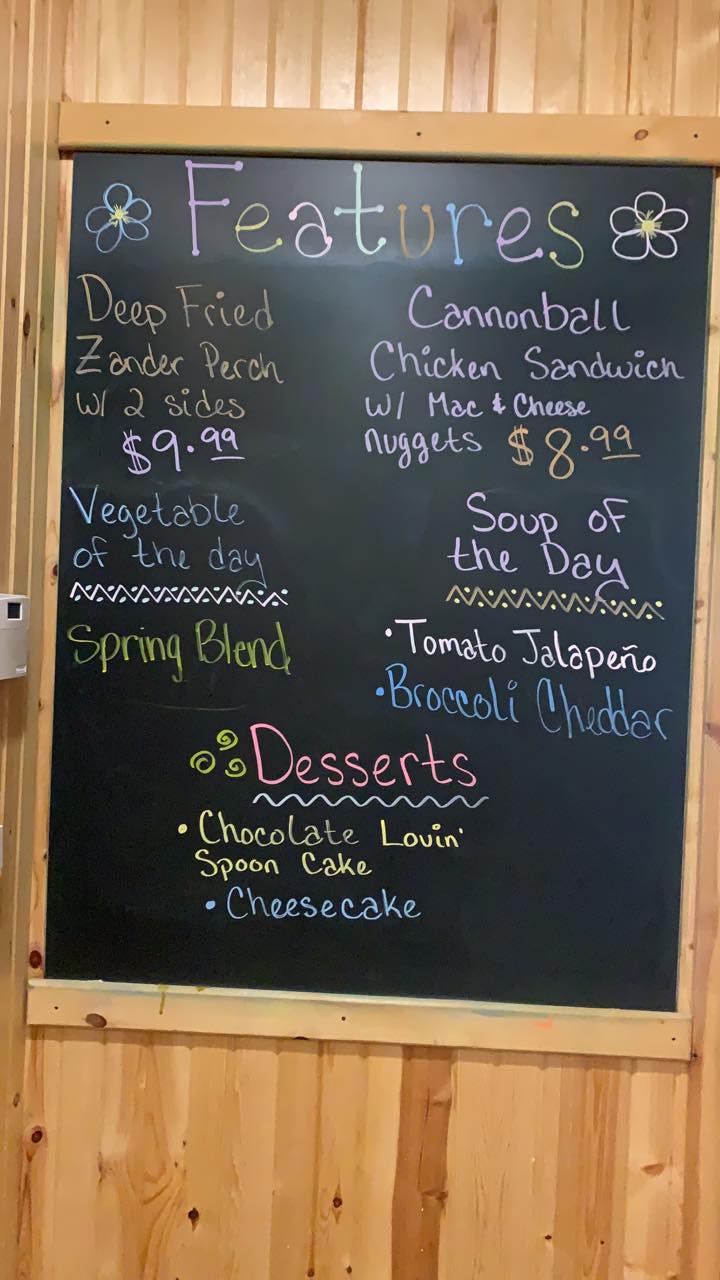 Features
Deep Fried
Zander Perch
w/ 2 sides
$9.99
Cannonball
Chicken Sandwich
w/ Mac & Cheese
nuggets $8.99
Vegetable
of the day
Spring Blend
Soup of
the Day
• Tomato Jalapeño
• Broccoli Cheddar
Desserts
• Chocolate Lovin'
Spoon Cake
• Cheesecake